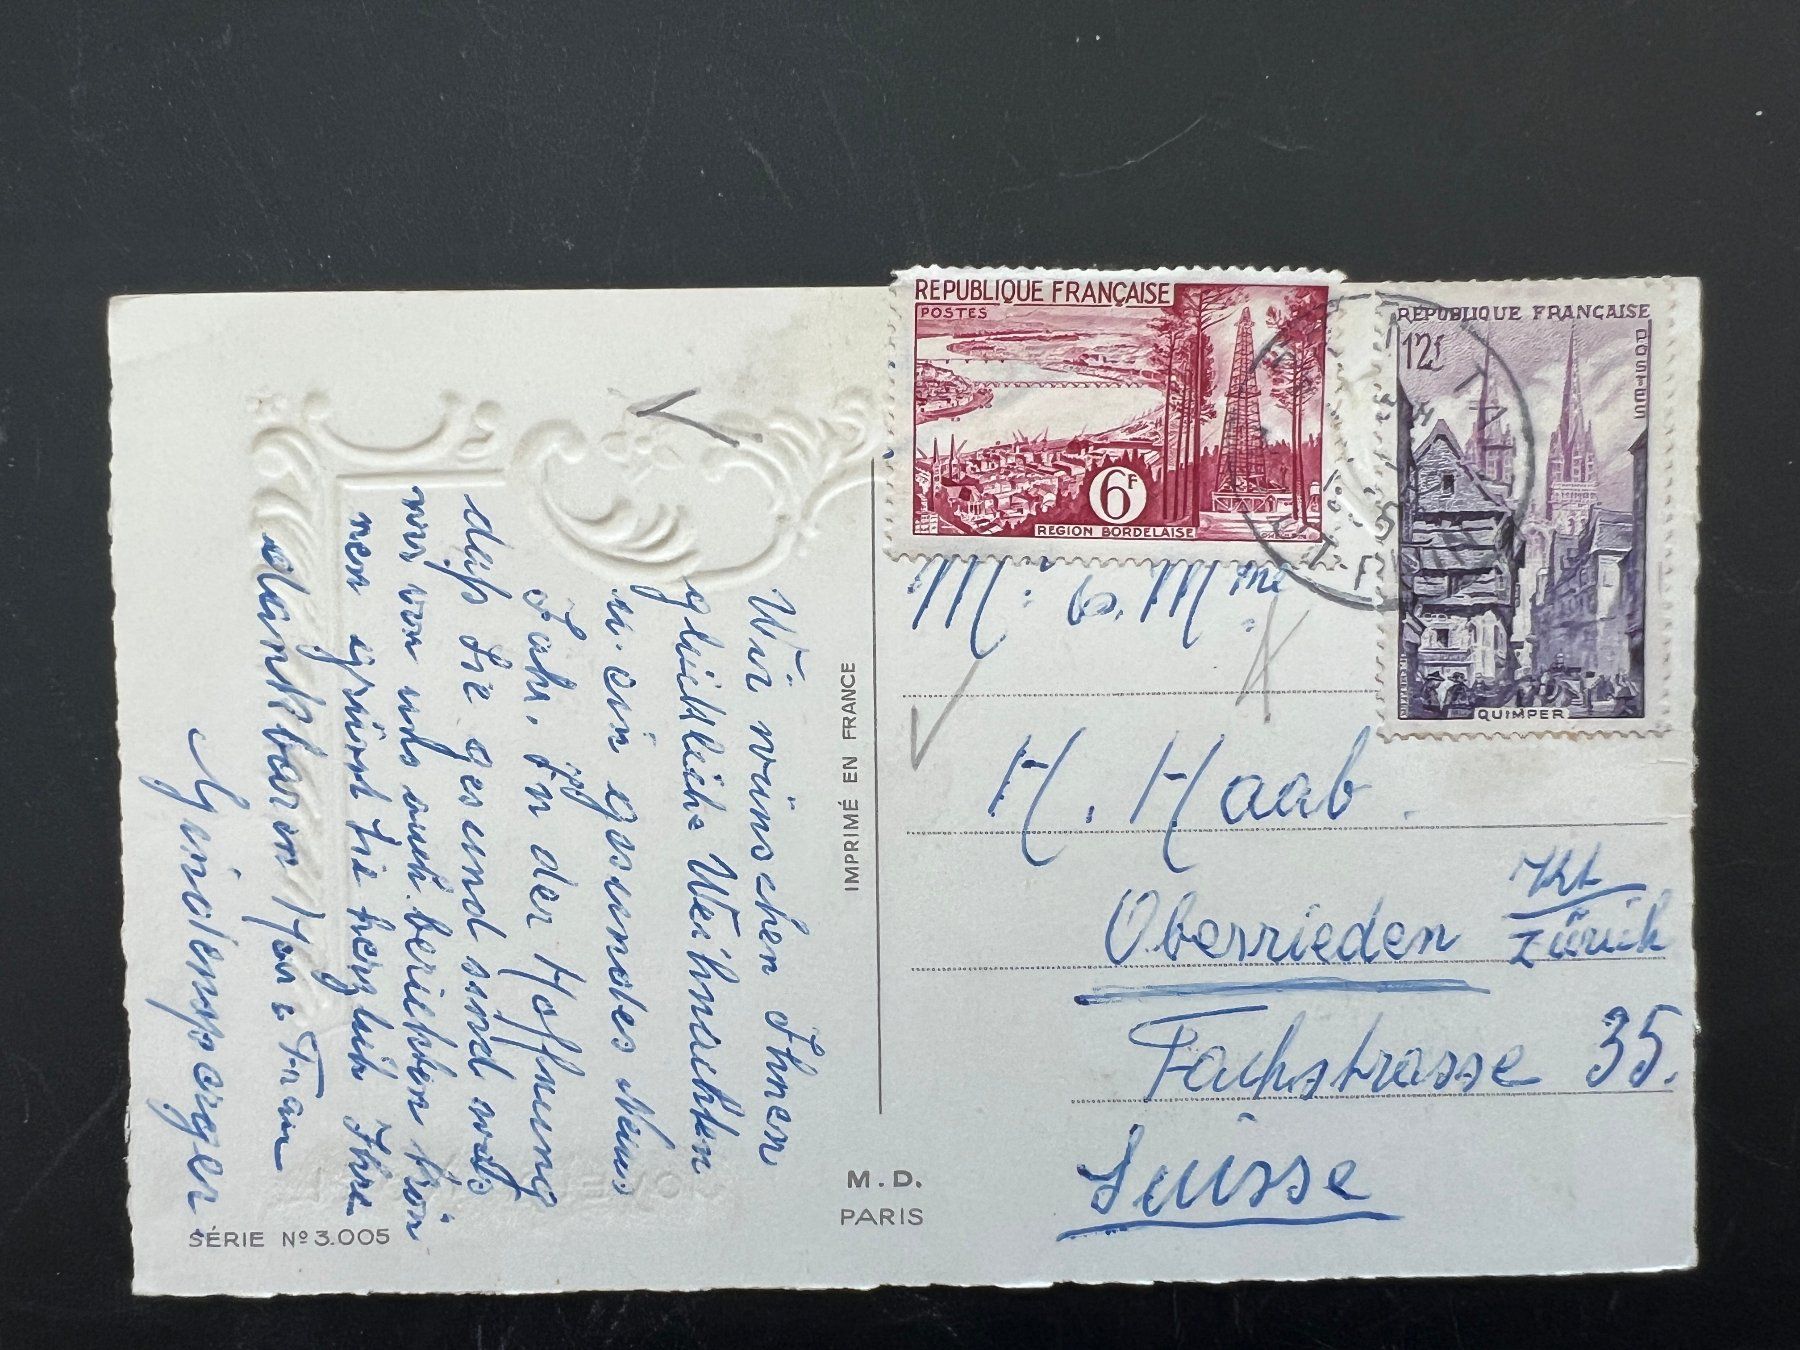 Wir wünschen Ihnen
glückliche Weihnachten
u. ein gesundes Neues
Jahr. In der Hoffnung
daß Sie gesund sind was
wir von uns auch berichten kön
nen grüsst Sie herzlich Ihre
dankbaren Herr u. Frau
SÉRIE Nº 3.005
IMPRIMÉ EN FRANCE
M.D.
PARIS
REPUBLIQUE FRANÇAISE
POSTES
6F
REGION BORDELAISE
REPUBLIQUE FRANÇAISE
12F
POSTES
QUIMPER
H. Haab.
Oberrieden Kt
Zürich
Fachstrasse 35.
Suisse